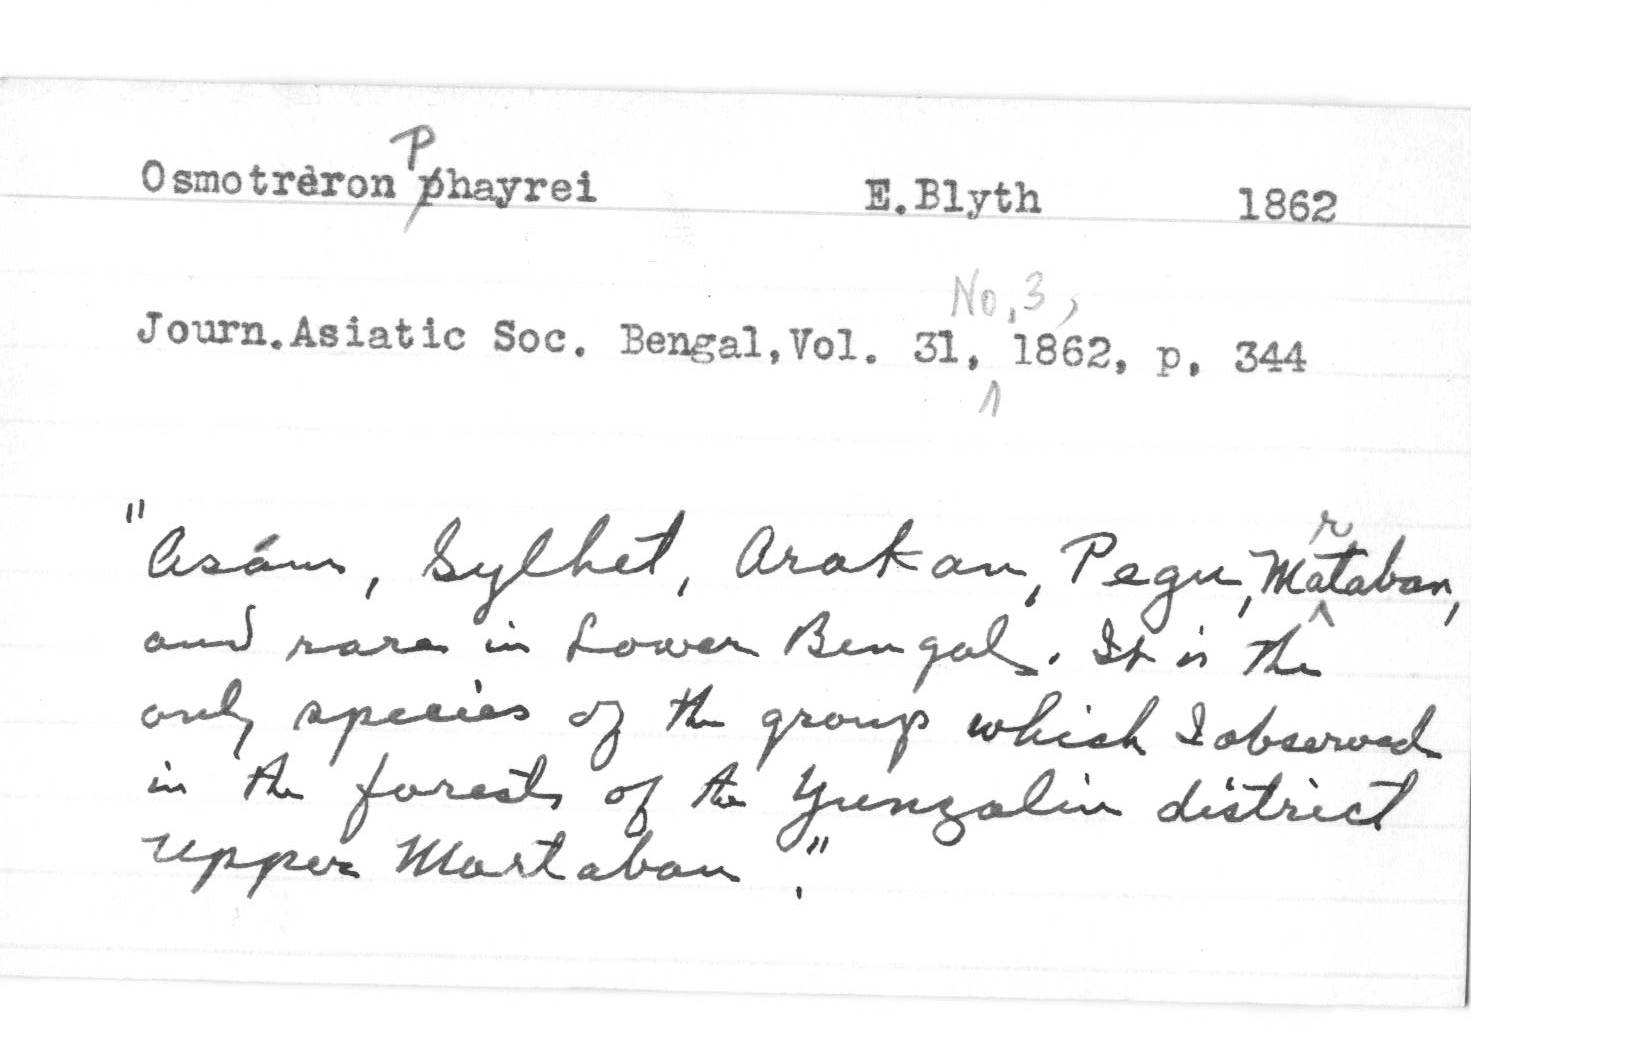 Osmotrèron Phayrei E.Blyth 1862
Journ.Asiatic Soc. Bengal,Vol. 31, No,3, 1862, p. 344
"Asám, Sylhet, Arakan, Pegu, Martaban,
and rare in Lower Bengal. It is the
only species of the group which I observed
in the forests of the Yunzalin district
Upper Martaban."